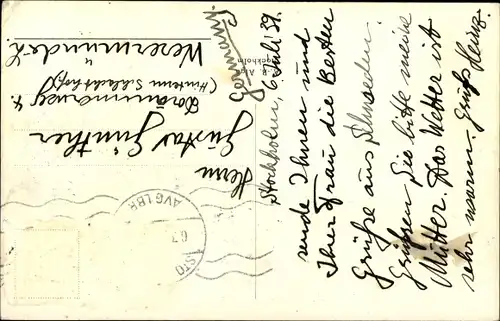 Stockholm, 6 Juli 39.
sende Ihnen und
Ihrer Frau die besten
Grüße aus Schweden.
Grüssen Sie bitte meine
Mutter. Das Wetter ist
sehr warm. Gruß Heinz.
Herrn
Gustav Günther
(Hinterm Schlachthof)
Wesermünde-L
Germany
Stockholm
AVG LBR
6.7
STO